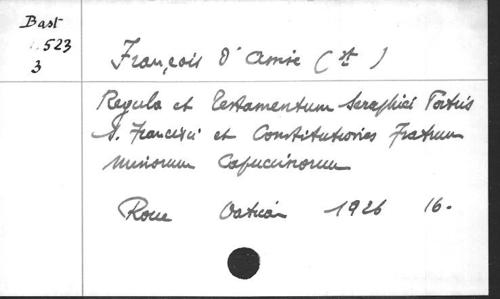 Bast
523
3
François d'Assise (St)
Regula et Testamentum Seraphici Patris
S. Francisci et Constitutiones Fratrum
Minorum Capuccinorum
Rome Vatican 1926 16-